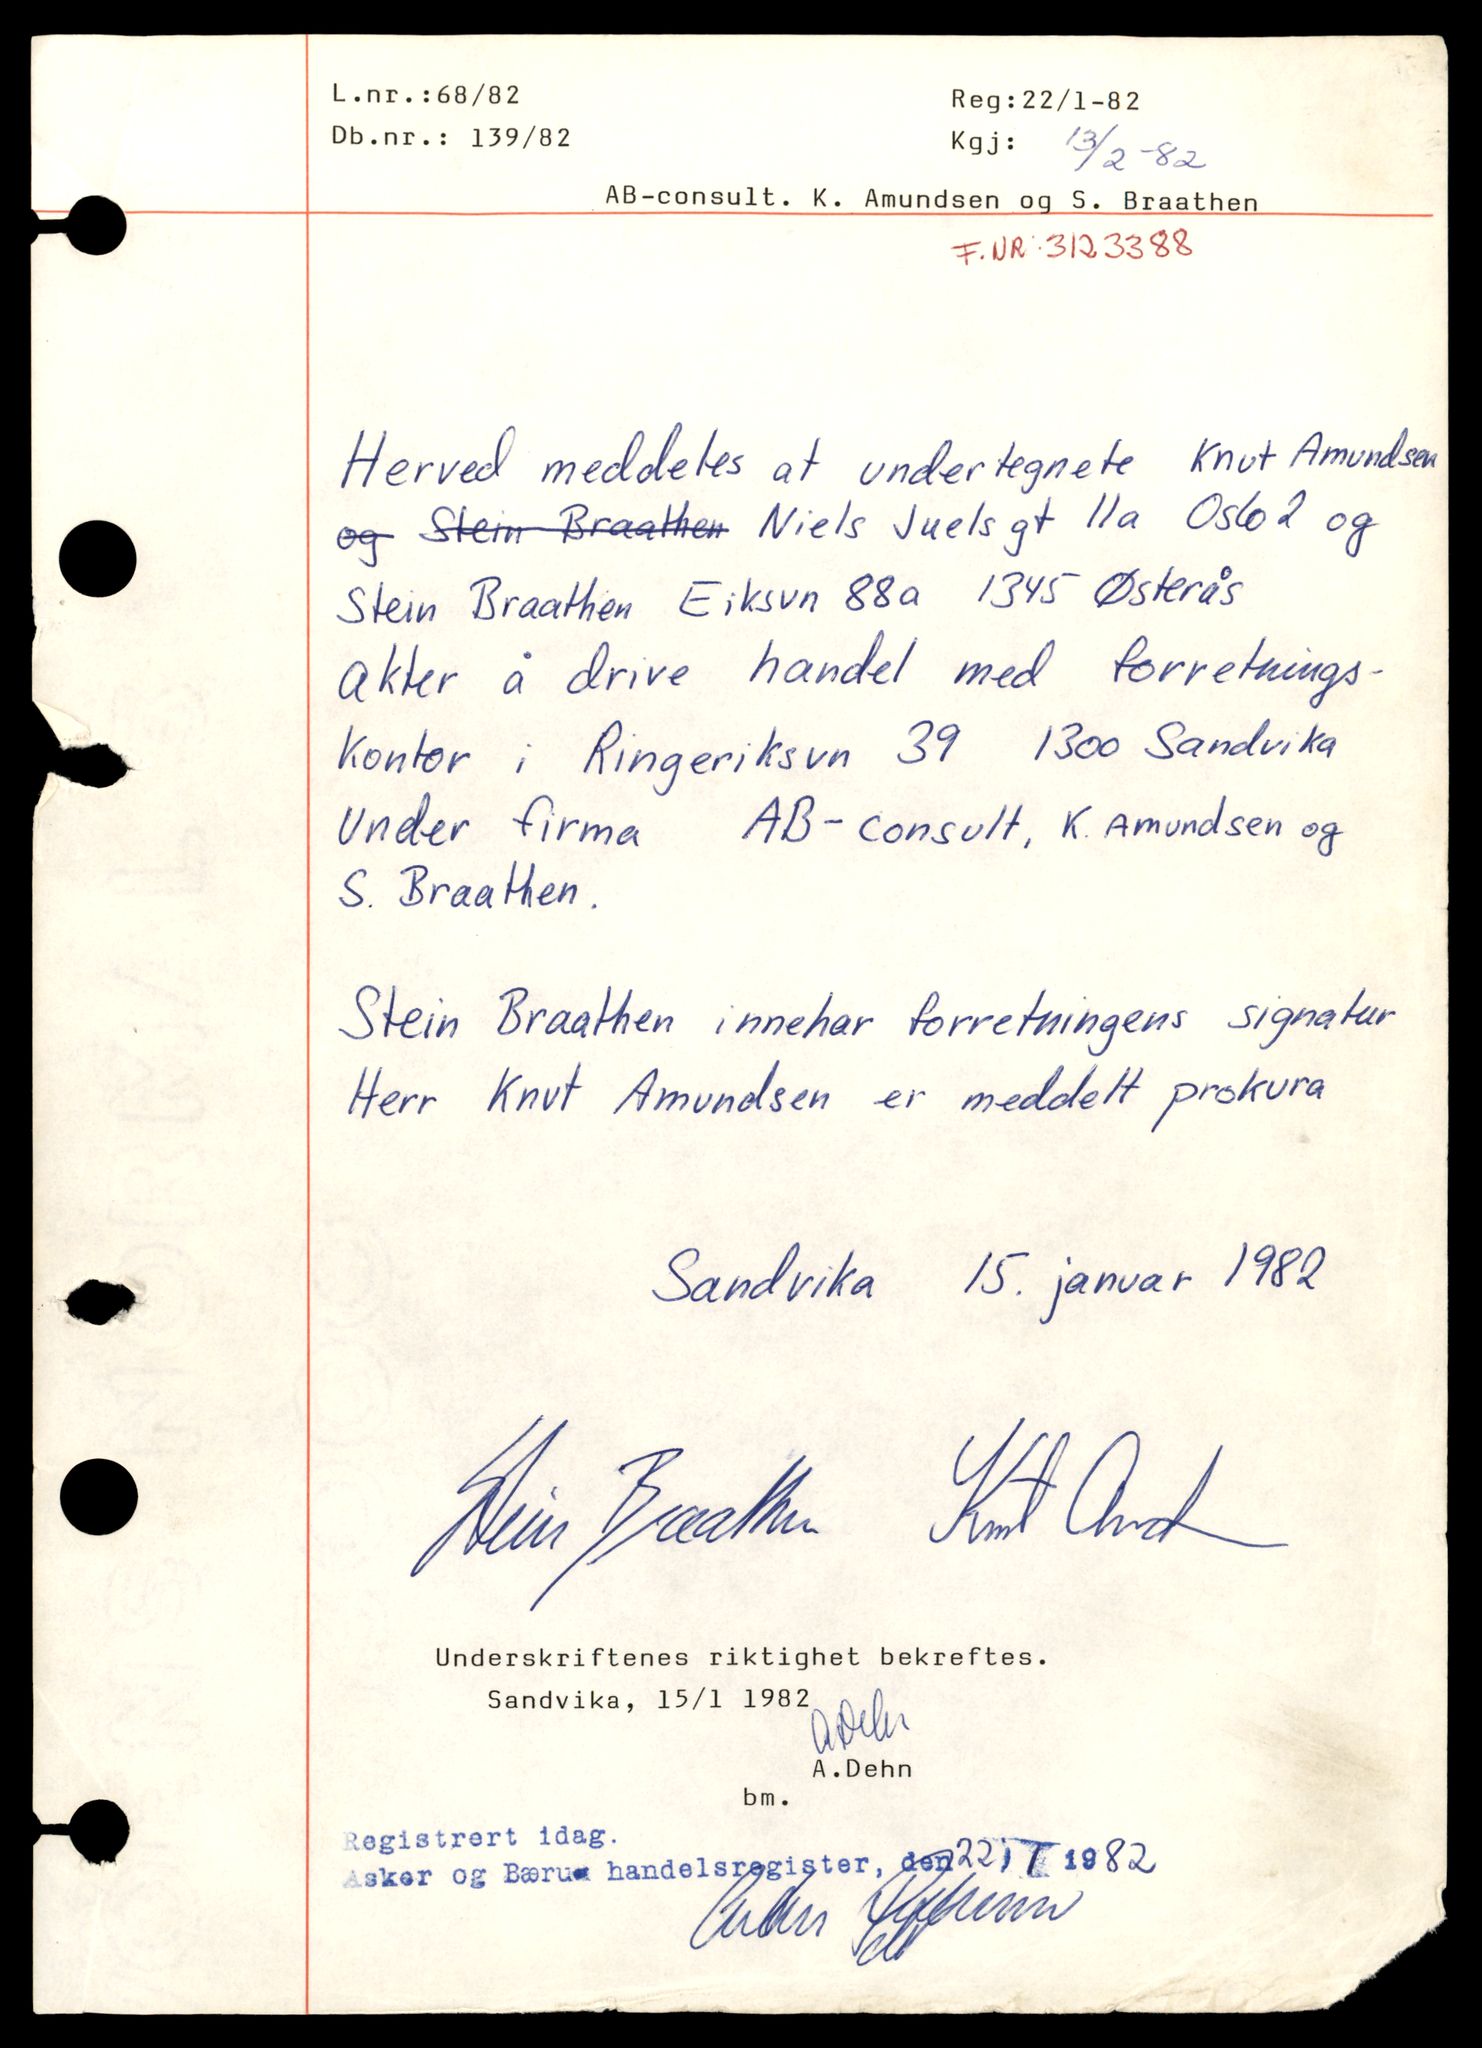 L.nr.:68/82
Reg:22/1-82
Db.nr.: 139/82
Kgj: 13/2-82
AB-consult. K. Amundsen og S. Braathen
F.NR: 3123388
Herved meddeles at undertegnete Knut Amundsen
og Stein Braathen Niels Juelsgt 11a Oslo 2 og
Stein Braathen Eiksvn 88a 1345 Østerås
akter å drive handel med forretnings-
kontor i Ringeriksvn 39 1300 Sandvika
under firma AB-consult, K. Amundsen og
S. Braathen.
Stein Braathen innehar forretningens signatur
Herr Knut Amundsen er meddelt prokura
Sandvika 15. januar 1982
Stein Braathen Knut
Underskriftenes riktighet bekreftes.
Sandvika, 15/1 1982
ADehn
A.Dehn
bm.
Registrert idag.
Asker og Bærum handelsregister, den 22/1 1982